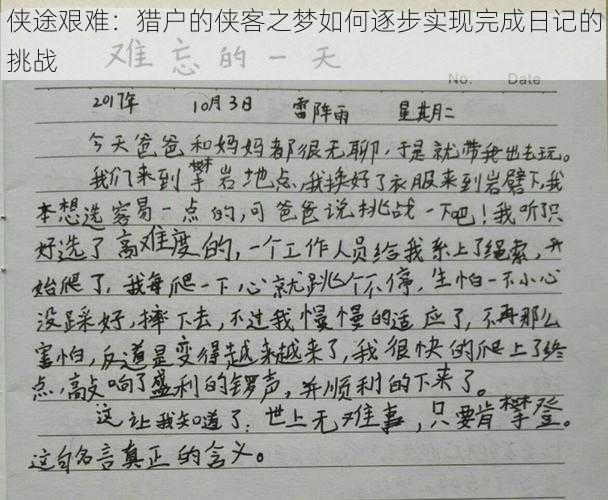 侠途艰难：猎户的侠客之梦如何逐步实现完成日记的
挑战
难忘的一天
No. Date
2017年 10月3日 雷阵雨 星期二
今天爸爸和妈妈都很无聊，于是就带我出去玩。
我们来到攀岩地点，我换好了衣服来到岩臂下，我
本想选容易一点的，可爸爸说挑战一下吧！我听只
好选了高难度的，一个工作人员给我系上了绳索，开
始爬了，我每爬一下，心就跳个不停，生怕一不小心
没踩好，摔下去，不过我慢慢的适应了，不再那么
害怕，反道是变得越来越来了，我很快的爬上了终
点，敲响了盛利的锣声，并顺利的下来了。
这让我知道了：世上无难事，只要肯攀登。
这句名言真正的含义。